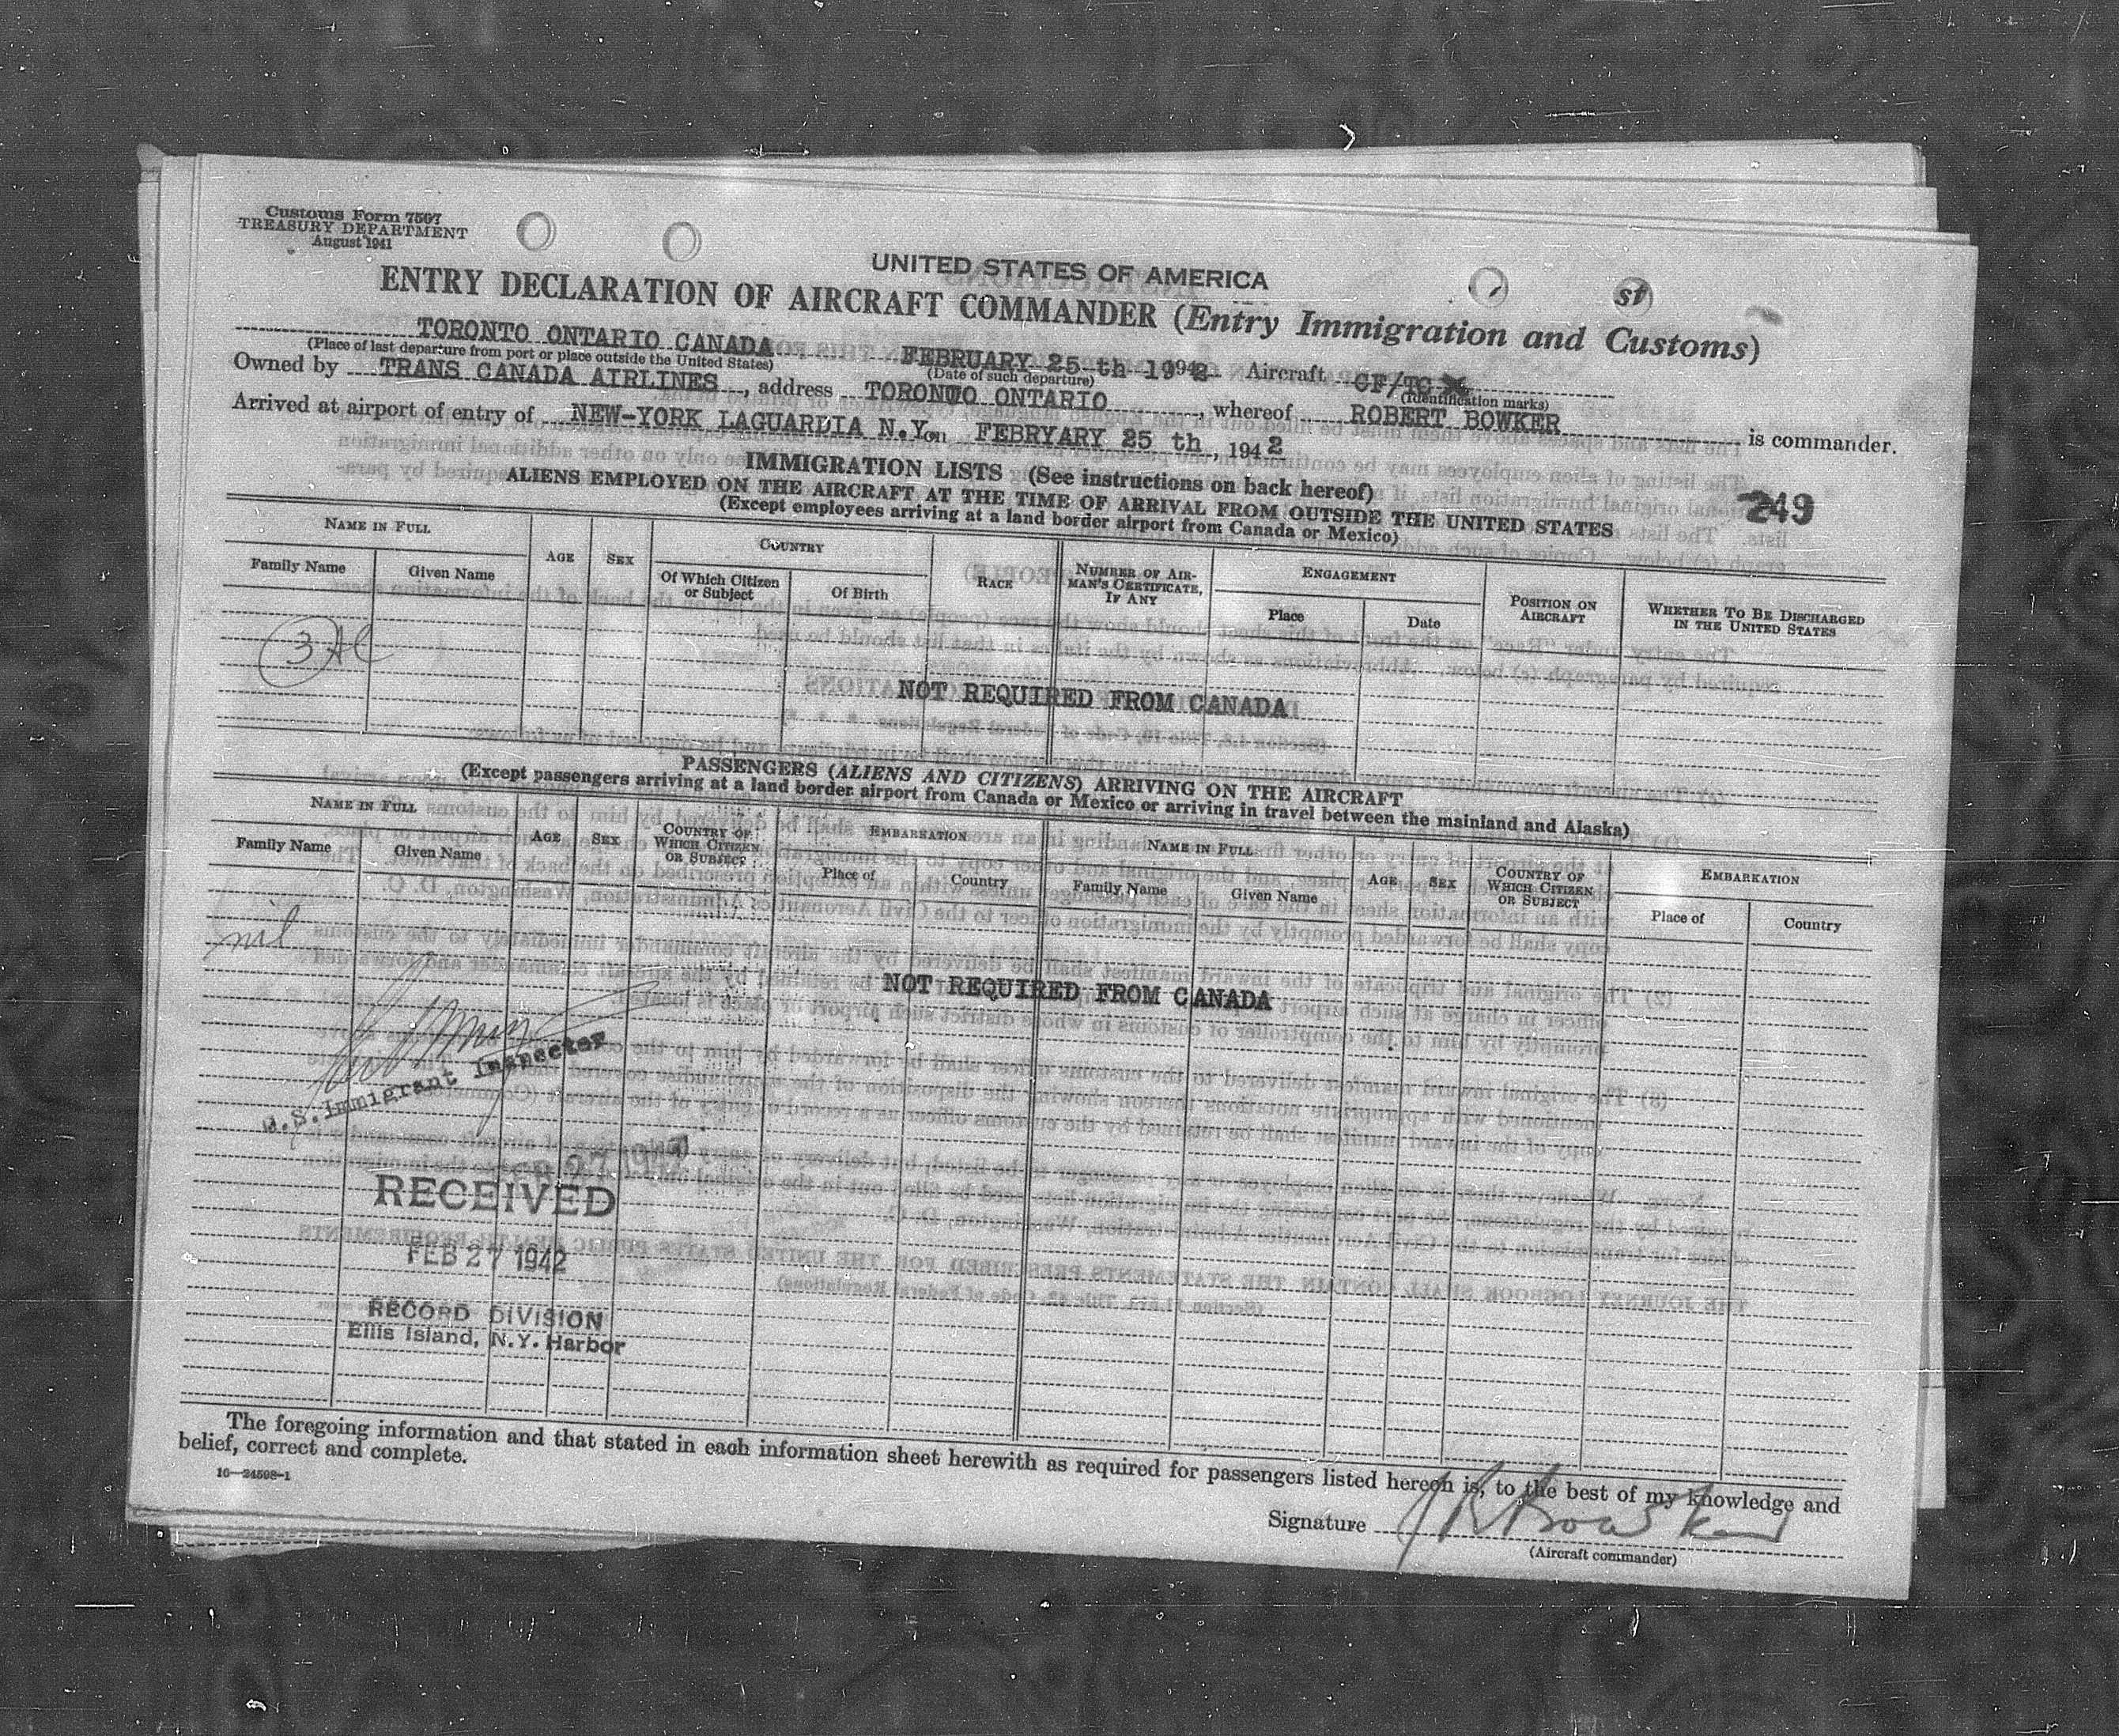 Customs Form 7507
TREASURY DEPARTMENT
August 1941
st
UNITED STATES OF AMERICA
ENTRY DECLARATION OF AIRCRAFT COMMANDER (Entry Immigration and Customs)
TORONTO ONTARIO CANADA, FEBRUARY 25 th 19 1942 Aircraft CF/TC
(Place of last departure from port or place outside the United States) (Date of such departure) (Identification marks)
Owned by TRANS CANADA AIRLINES, address TORONTO ONTARIO, whereof ROBERT BOWKER is commander.
Arrived at airport of entry of NEW-YORK LAGUARDIA N.Y. on FEBRYARY 25 th, 1942
IMMIGRATION LISTS (See instructions on back hereof)
ALIENS EMPLOYED ON THE AIRCRAFT AT THE TIME OF ARRIVAL FROM OUTSIDE THE UNITED STATES
(Except employees arriving at a land border airport from Canada or Mexico)
249
NAME IN FULL AGE SEX COUNTRY RACE NUMBER OF AIRMAN'S CERTIFICATE, IF ANY ENGAGEMENT POSITION ON AIRCRAFT WHETHER TO BE DISCHARGED IN THE UNITED STATES
Family Name Given Name Of Which Citizen or Subject Of Birth Place Date
3
NOT REQUIRED FROM CANADA
PASSENGERS (ALIENS AND CITIZENS) ARRIVING ON THE AIRCRAFT
(Except passengers arriving at a land border airport from Canada or Mexico or arriving in travel between the mainland and Alaska)
NAME IN FULL AGE SEX COUNTRY OF WHICH CITIZEN OR SUBJECT EMBARKATION NAME IN FULL AGE SEX COUNTRY OF WHICH CITIZEN OR SUBJECT EMBARKATION
Family Name Given Name Place of Country Family Name Given Name Place of Country
nil
NOT REQUIRED FROM CANADA
U.S. Immigrant Inspector
RECEIVED
FEB 27 1942
RECORD DIVISION
Ellis Island, N.Y. Harbor
The foregoing information and that stated in each information sheet herewith as required for passengers listed hereon is, to the best of my knowledge and
belief, correct and complete.
16—24598-1
Signature
(Aircraft commander)